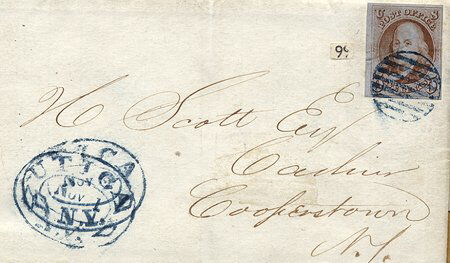 U S
POST OFFICE
99
H Scott Esq
Cashier
Cooperstown
N.Y.
UTICA
NOV
NOV
N.Y.